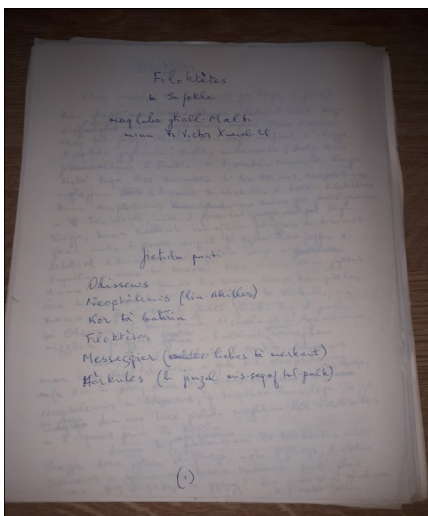 Filoktètes
ta Sofokle
maqluba għall-Malti
minn ta Victor Xuereb
jieħdu parti
Odissews
Neoptòlemus (bin Akilles)
Kor ta' baħrin
Filoktètes
Messeġġier (liebes ta' merkant)
Èrkules (li jinżel mis-saqaf tal-palk)
(1)